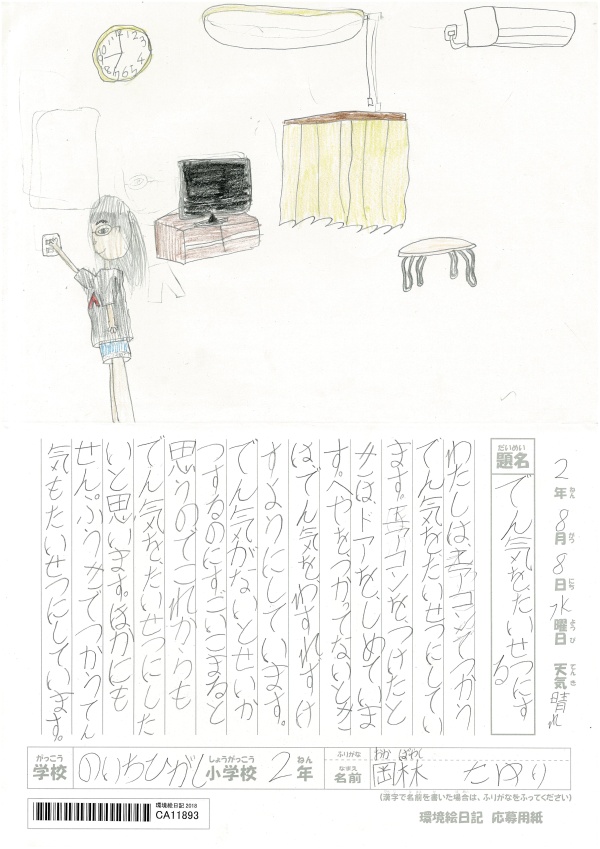 2年8月8日水曜日 天気晴れ
ねん がつ にち ようび てんき
だいめい
題名
でん気をたいせつにする
わたしはエアコンでつかう
でん気をたいせつにしてい
ます。エアコンをつけたと
きはドアをしめていま
す。へやをつかってないとき
はでん気をわすれずけ
すようにしています。
でん気がないとせいか
つするのにすごいこまると
思うのでこれからも
でん気をたいせつにした
いと思います。ほかにも
せん。ぷうきでつかうでん
気もたいせつにしています。
がっこう しょうがっこう ねん
学校 のいちひがし小学校 2年
ふりがな おか ばやし
なまえ
名前 岡林
(漢字で名前を書いた場合は、ふりがなをふってください)
環境絵日記 2018
CA11893
環境絵日記 応募用紙